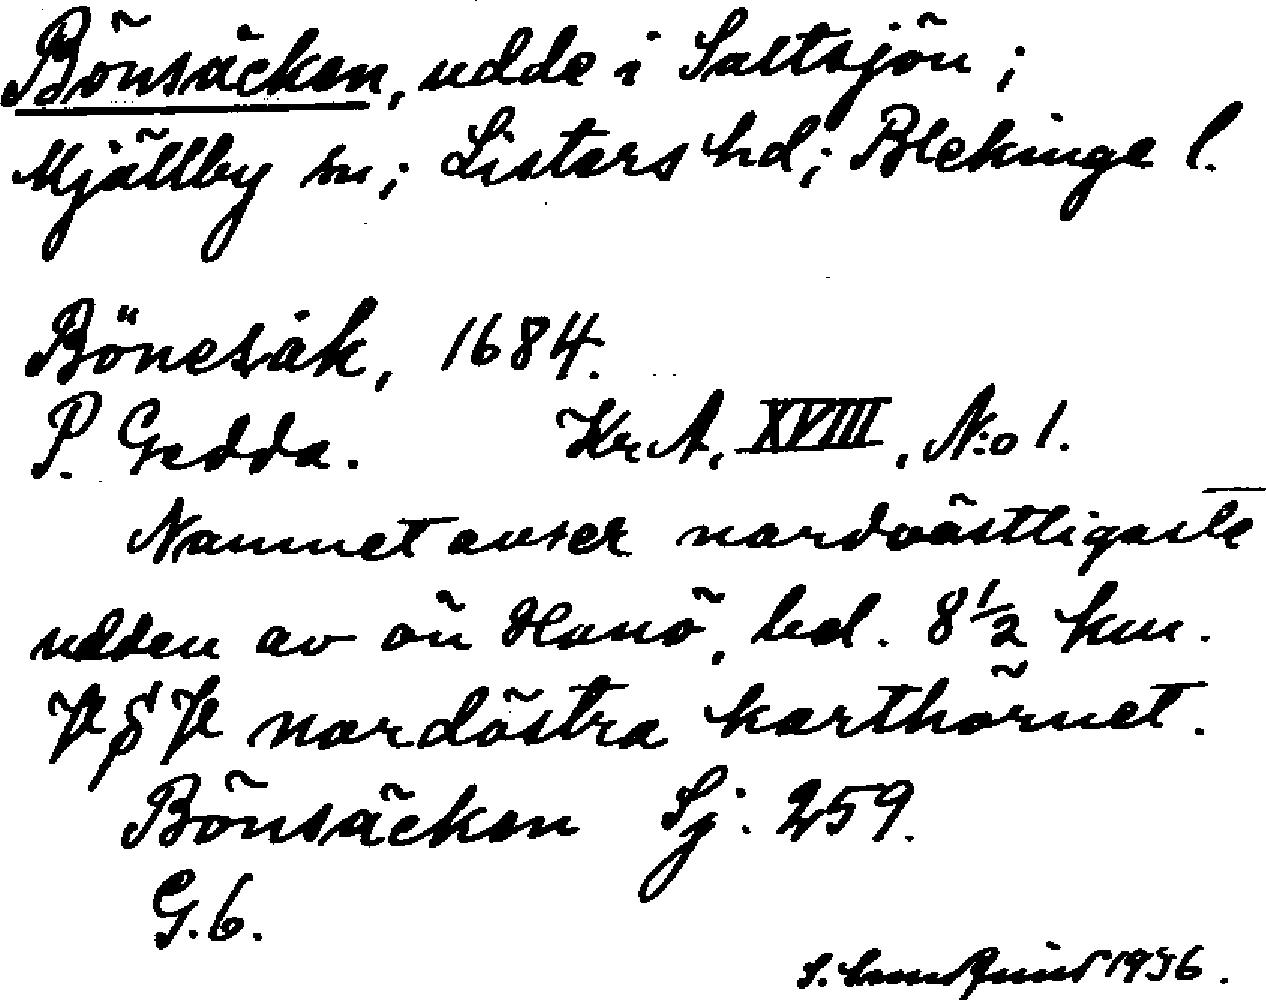 Bönsäcken, udde i Saltsjön;
Mjällby sn; Listers hd; Blekinge l.
Bönesäk, 1684.
P. Gedda. Kr. A, XVIII, N:o 1.
Namnet avser nordvästligaste
udden av ön Hanö, bel. 8 1/2 km.
VSV nordöstra karthörnet.
Bönsäcken Sj. 259.
G. 6.
1956.